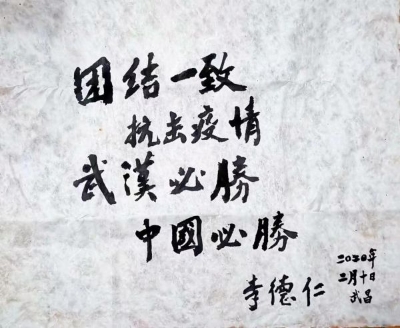 团结一致
抗击疫情
武漢必勝
中國必勝
李德仁
2020年
二月十日
武昌